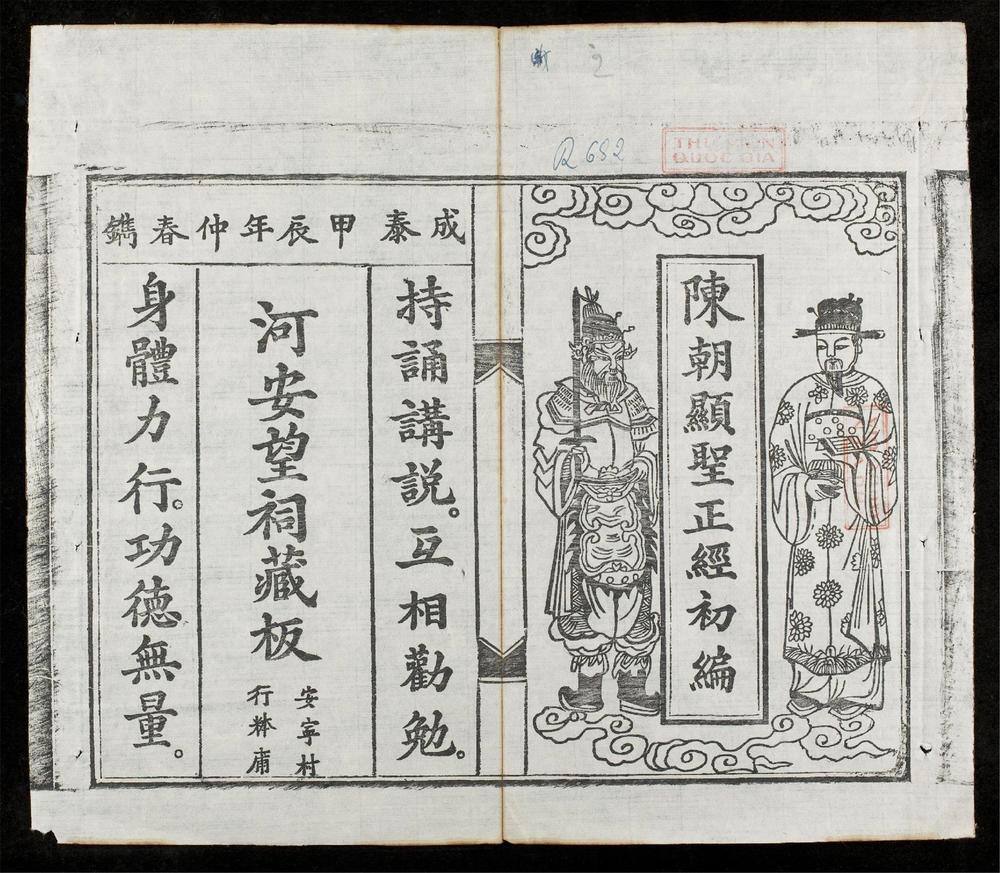 THƯ VIỆN
QUỐC GIA
陳朝顯聖正經初編
成泰甲辰年仲春鐫
持誦講説。互相勸勉。
河安望祠藏板
安寜村
行庯
身體力行。功德無量。